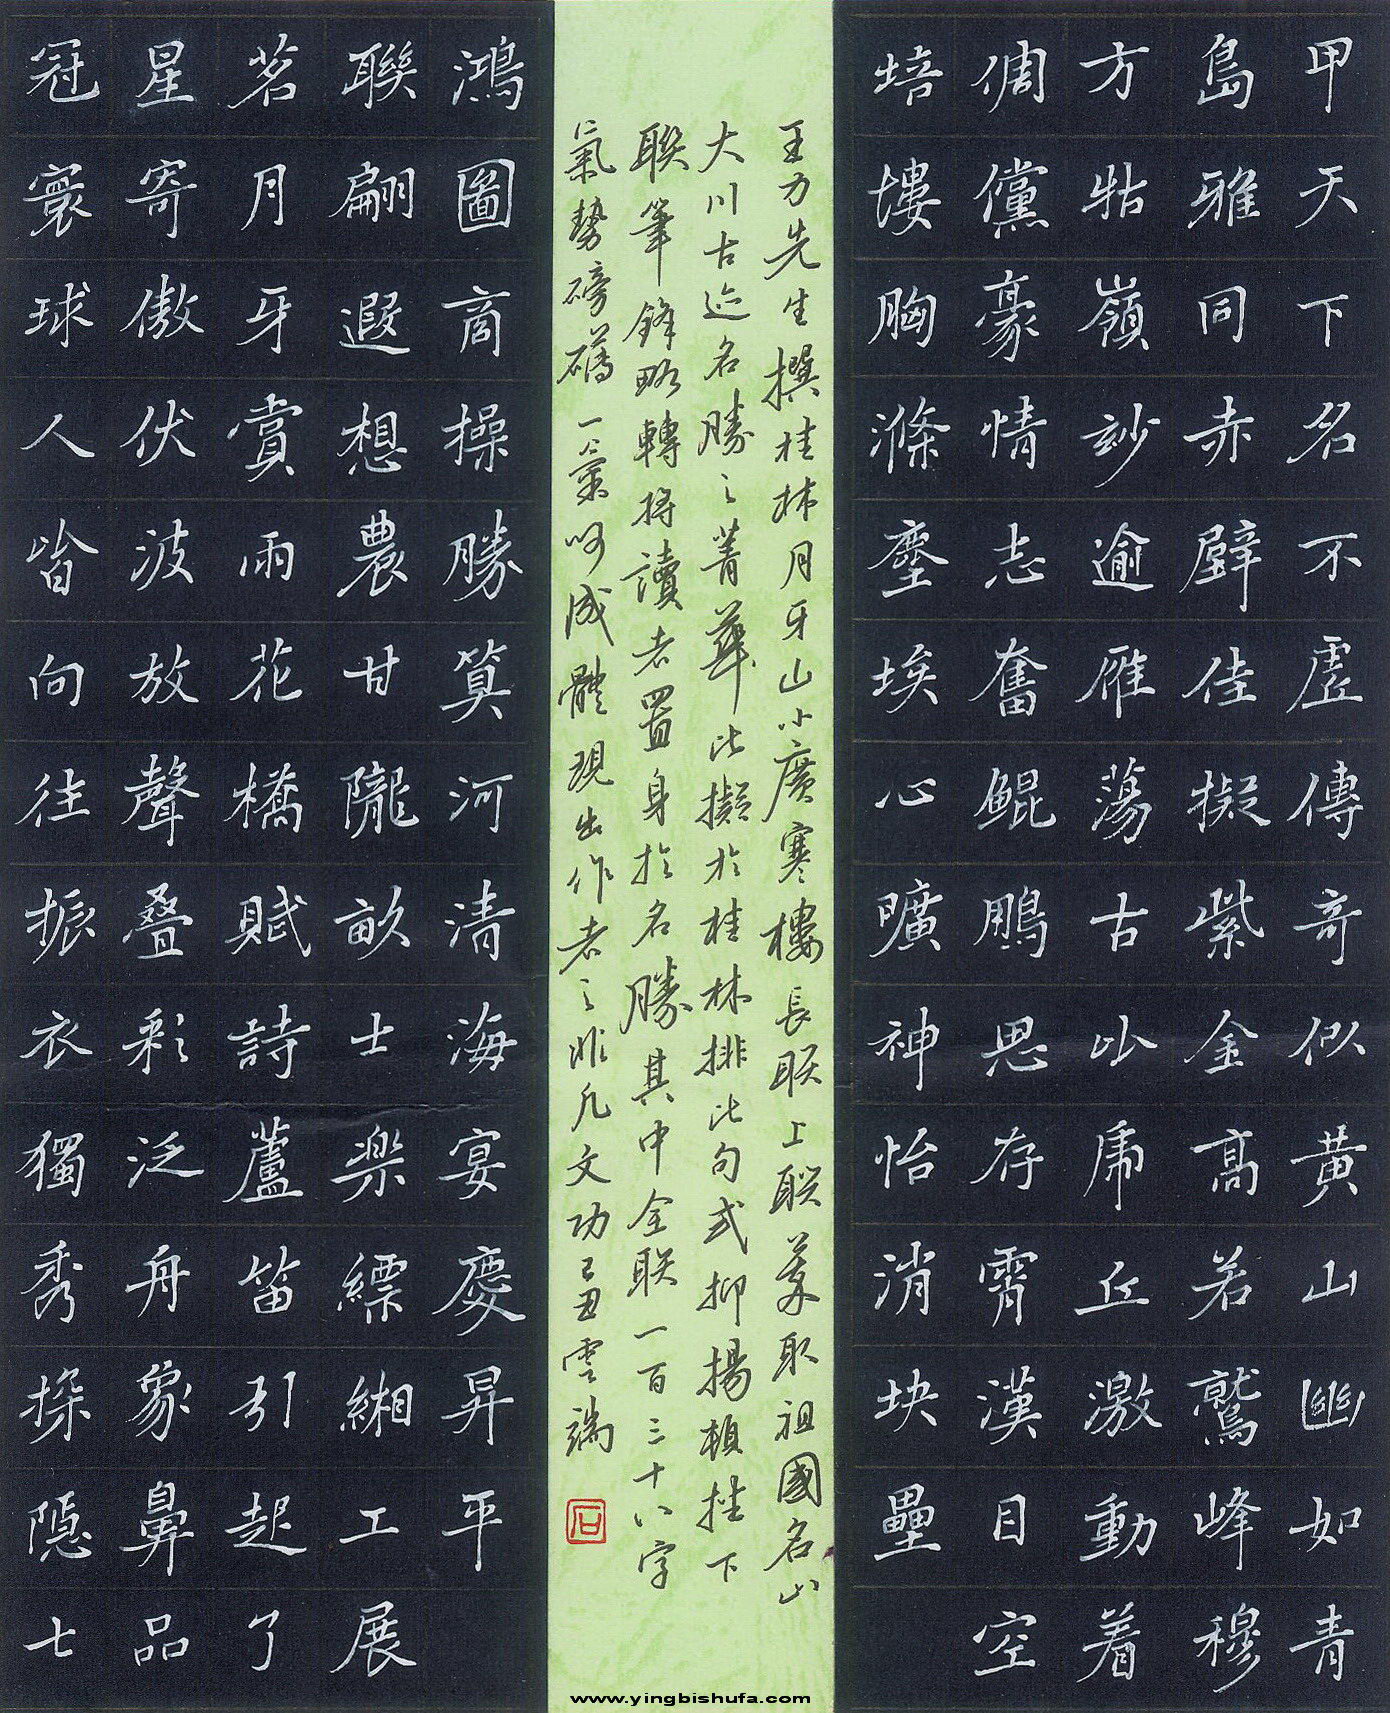 甲天下名不虛傳奇似黃山幽如青
島雅同赤壁佳擬紫金高若鷲峰穆
方牯嶺妙逾雁蕩古比虎丘激動着
倜儻豪情志奮鯤鵬思存霄漢目空
培塿胸滌塵埃心曠神怡消块壘
王力先生撰桂林月牙山小廣寒樓長联上聯萃取祖國名山
大川古迹名勝之菁華比擬於桂林排比句式抑揚頓挫下
聯筆鋒略轉将讀者置身於名勝其中全联一百三十八字
氣勢磅礴一氣呵成體現出作者之非凡文功己丑雲端
石
冠寰球人皆向往振衣獨秀探隱七
星寄傲伏波放聲叠彩泛舟象鼻品
茗月牙賞雨花橋賦詩蘆笛引起了
聯翩遐想農甘隴畝士楽縹緗工展
鴻圖商操勝算河清海宴慶昇平
www.yingbishufa.com